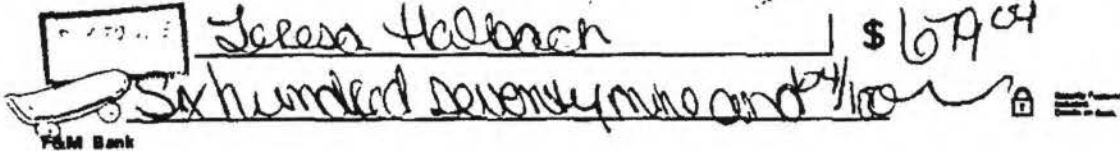 Teresa Halbach $ 679 04
Six hundred seventy nine and 04/100
F&M Bank